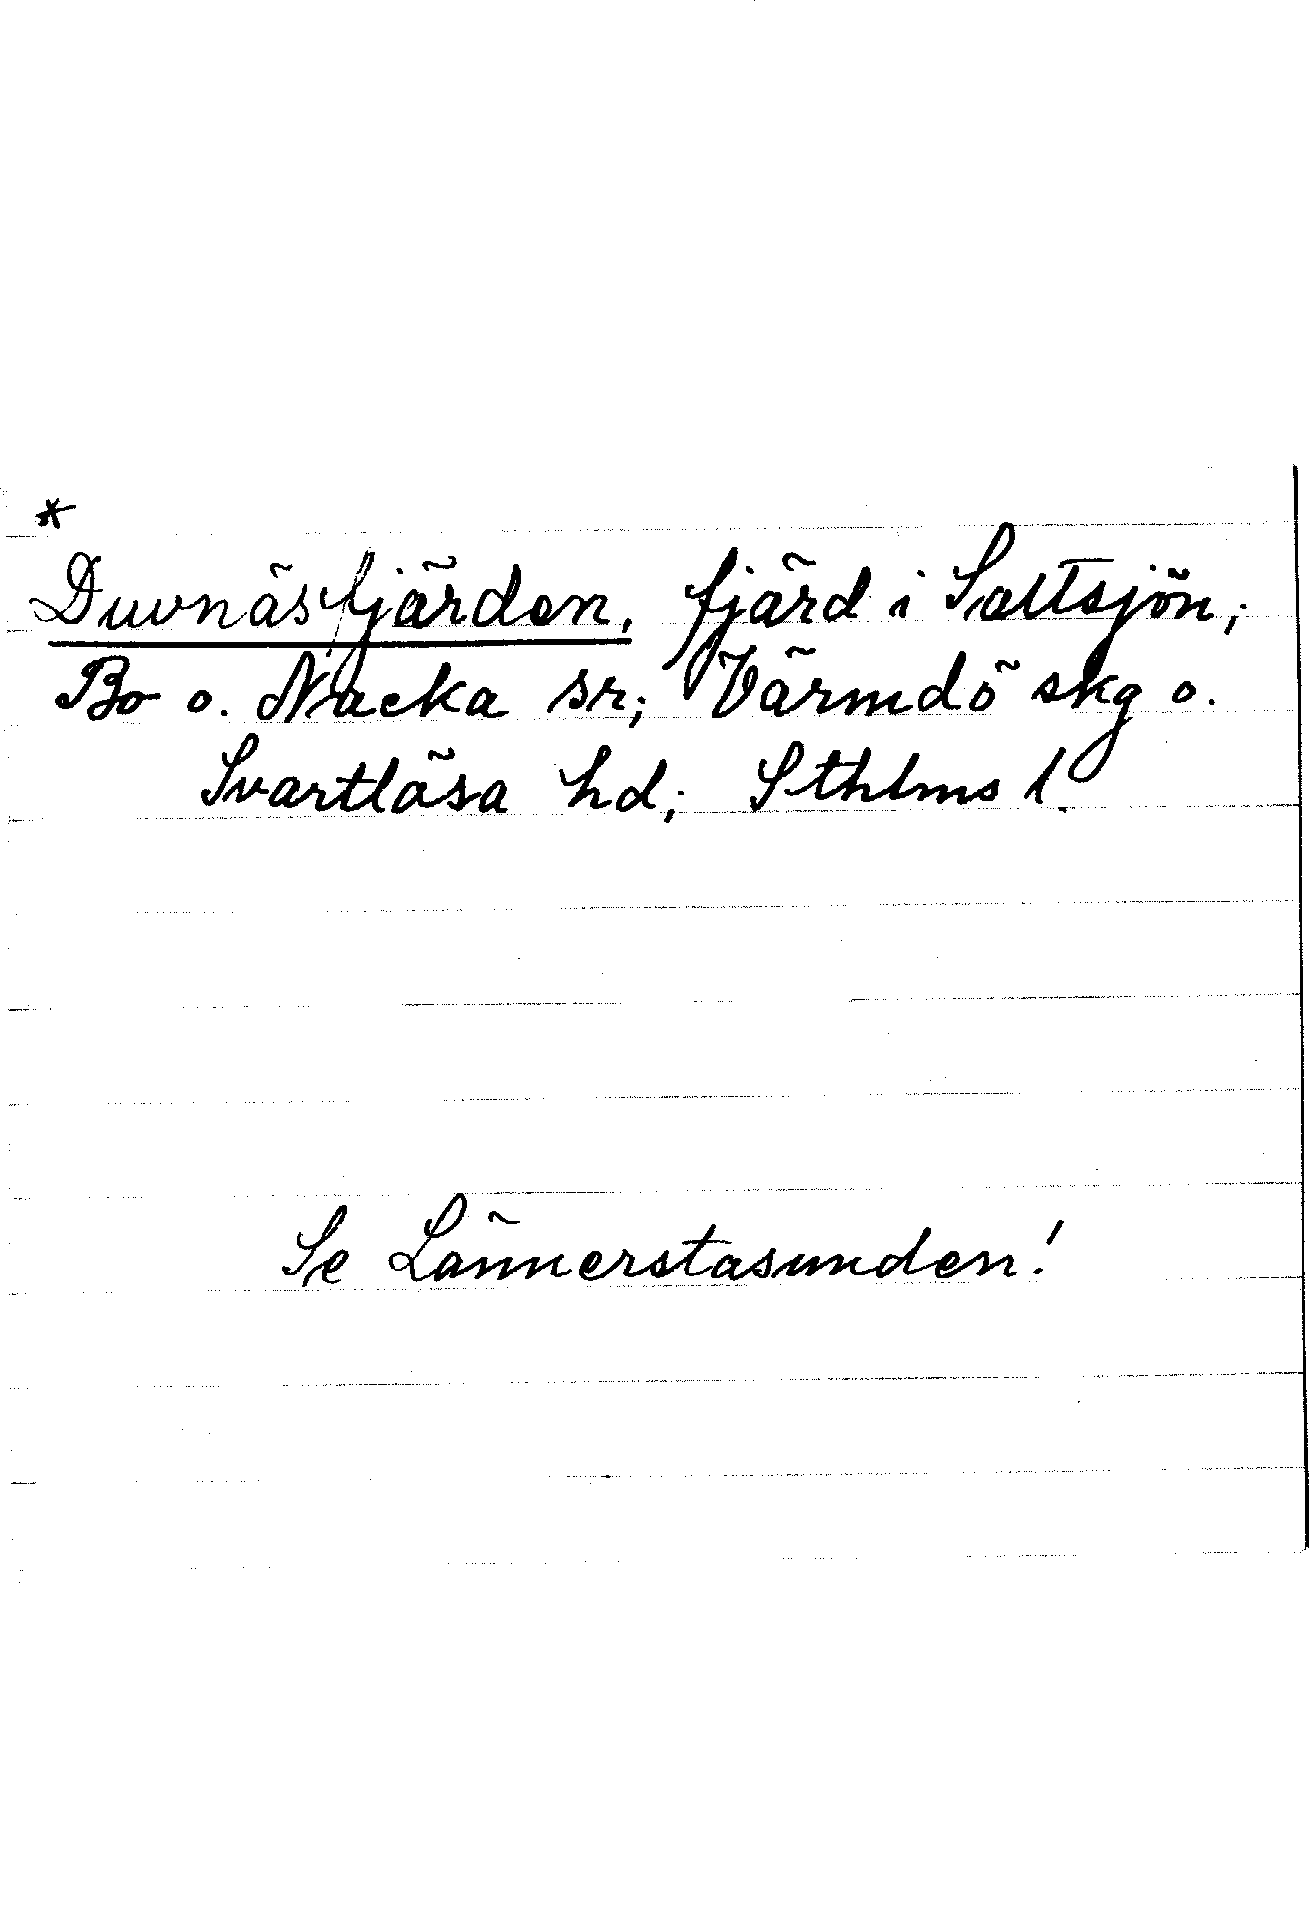 *
Duvnäsfjärden, fjärd i Saltsjön;
Bo o. Nacka sr; Värmdö skg o.
Svartlösa hd; Sthlms l.
Se Lännerstasunden!